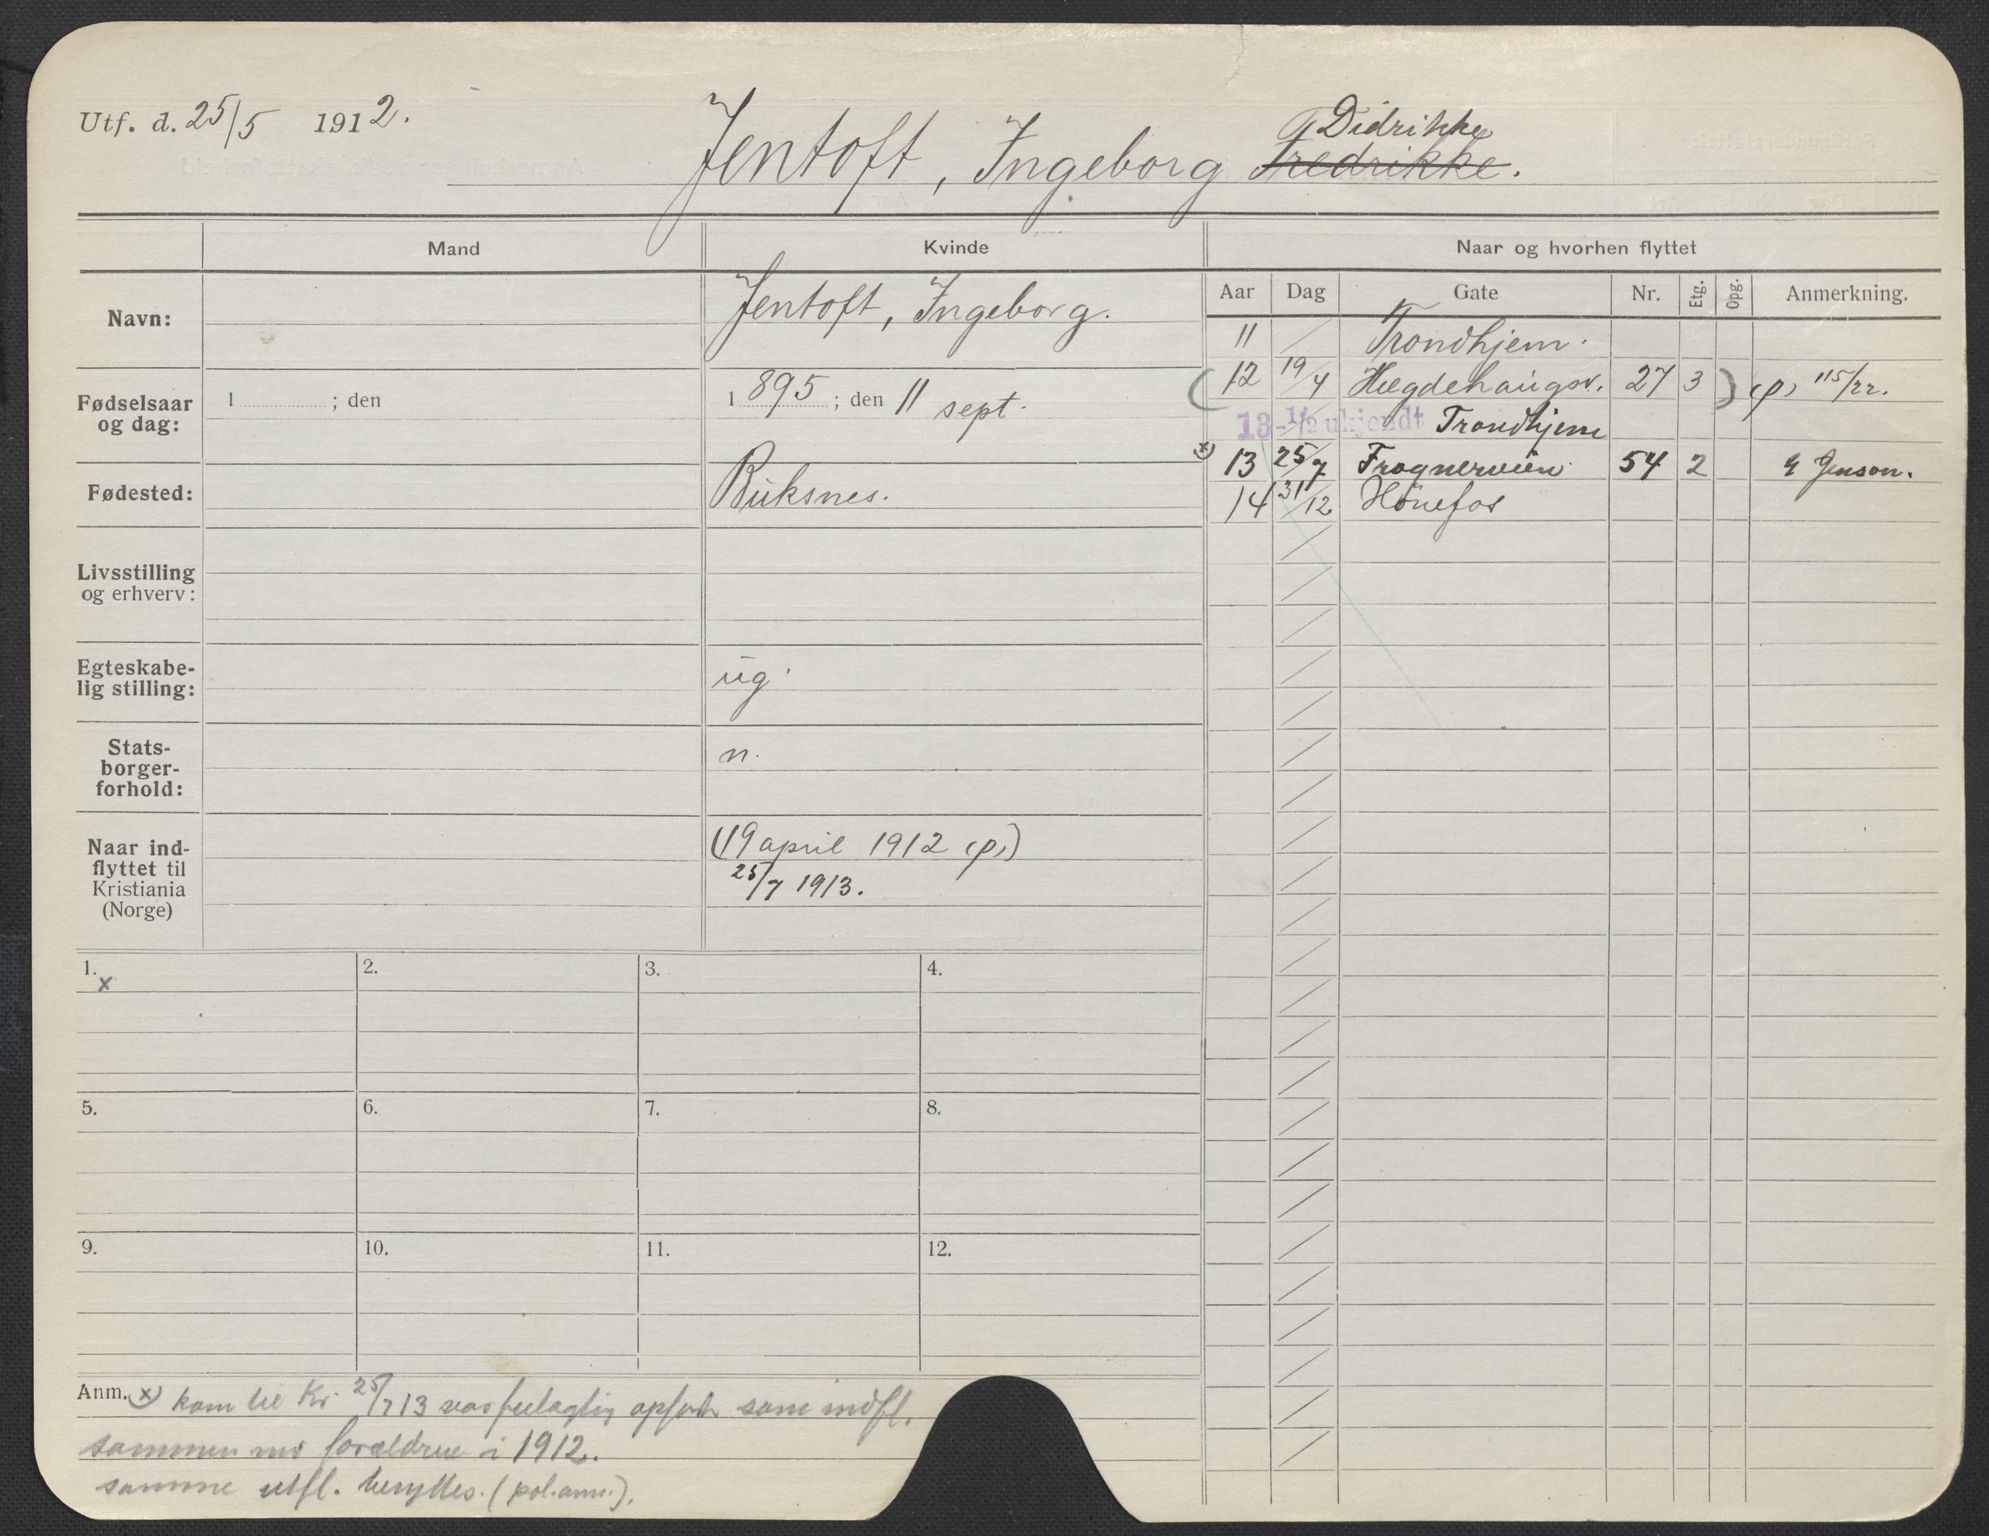 Utf. d. 25/5 1912.
Didrikke
Jentoft, Ingeborg Fredrikke.
Mand
Kvinde
Naar og hvorhen flyttet
Aar Dag Gate Nr. Etg. Opg. Anmerkning.
Navn:
Jentoft, Ingeborg.
11 Trondhjem.
(12 19/4 Hægdehaugsv. 27 3 ) (p) 115/22.
Fødselsaar
og dag:
1 ; den
1895 ; den 11 sept.
13 - 1/2 ukjendt Trondhjem
x) 13 25/7 Frognerveien 54 2 Jenson.
14 31/12 Hönefos
Fødested:
Buksnes.
Livsstilling
og erhverv:
Egteskabe-
lig stilling:
ug.
Stats-
borger-
forhold:
n.
Naar ind-
flyttet til
Kristiania
(Norge)
(19 april 1912 (p))
25/7 1913.
1. x
2.
3.
4.
5.
6.
7.
8.
9.
10.
11.
12.
Anm. x) kom til Kr. 25/7 13 var feilagtig opført som indfl.
sammen md forældrene i 1912.
samme utfl. benyttes. (pol.anm.).